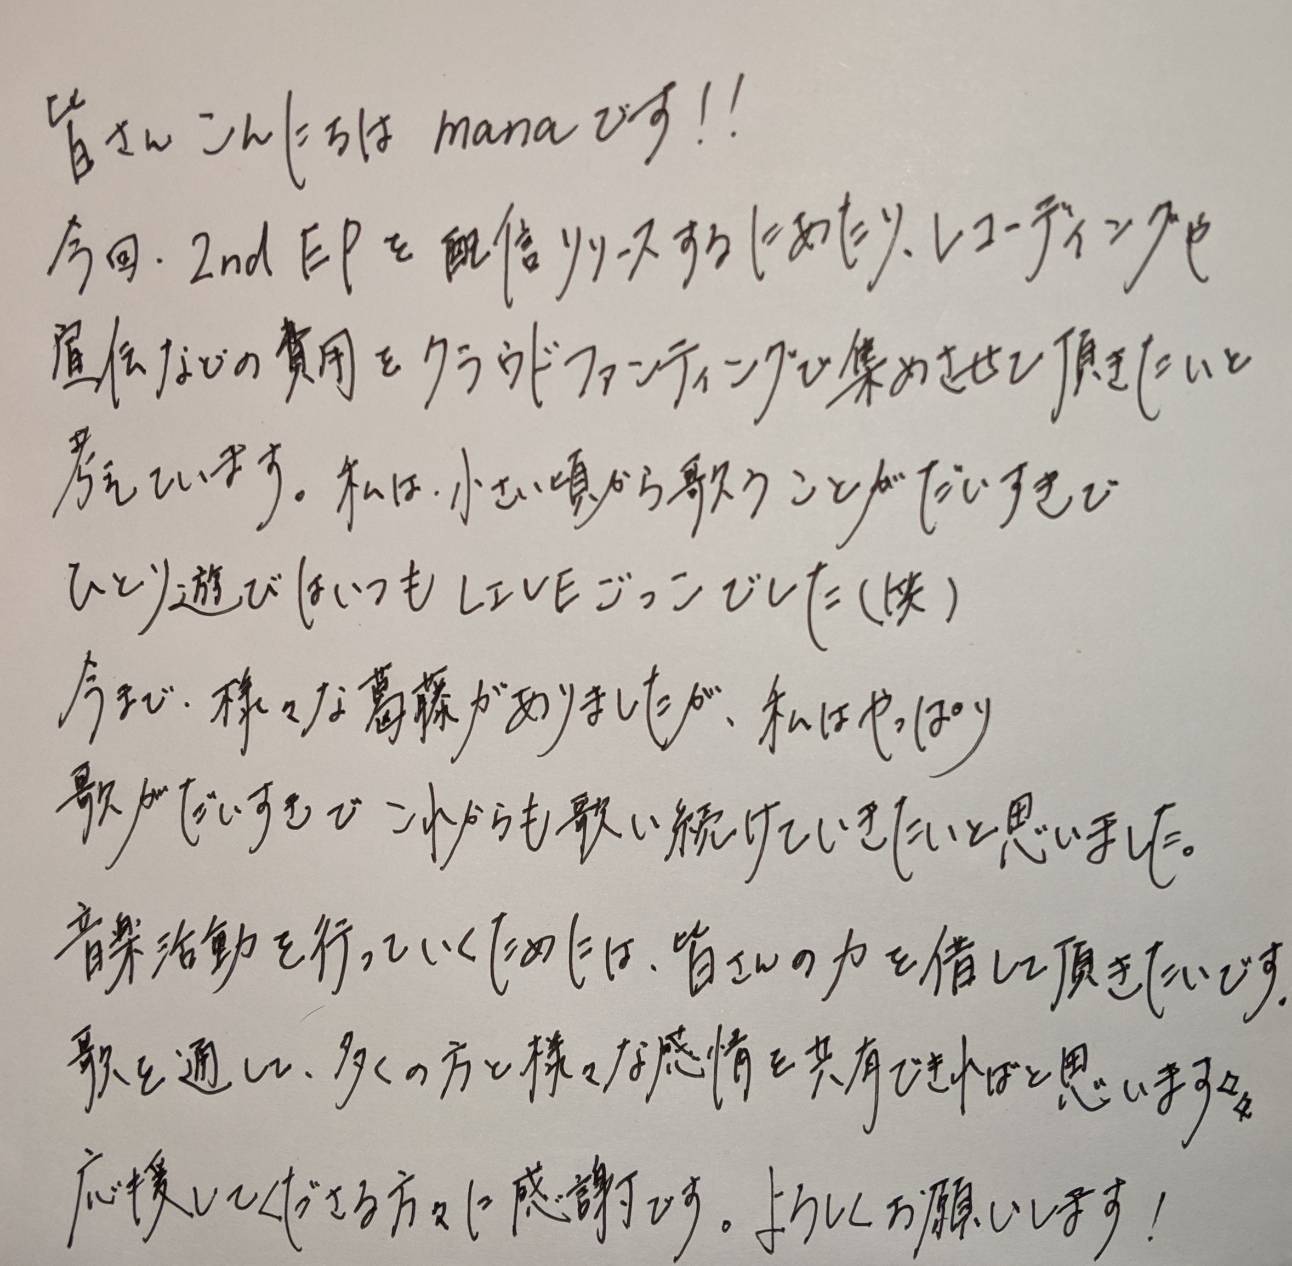 皆さんこんにちは manaです!!
今回、2nd EPを配信リリースするにあたり、レコーディングや
宣伝などの費用をクラウドファンディングで集めさせて頂きたいと
考えています。私は、小さい頃から歌うことがだいすきで
ひとり遊びはいつもLIVEごっこでした(笑)
今まで、様々な葛藤がありましたが、私はやっぱり
歌がだいすきでこれからも歌い続けていきたいと思いました。
音楽活動を行っていくためには、皆さんの力を借して頂きたいです。
歌を通して、多くの方と様々な感情を共有できればと思います☆☆
応援してくださる方々に感謝です。よろしくお願いします!